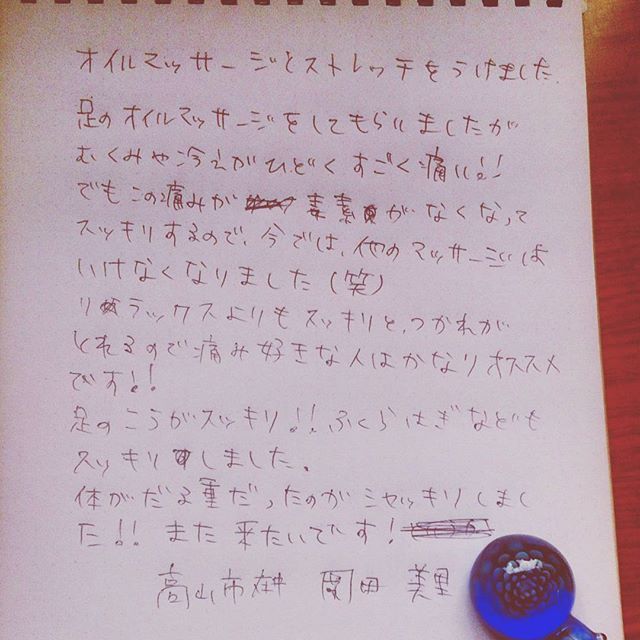 オイルマッサージとストレッチをうけました。
足のオイルマッサージをしてもらいましたが
むくみや冷えがひどくすごく痛い!!
でもこの痛みが 毒素がなくなって
スッキリするので、今では、他のマッサージは
いけなくなりました(笑)
リラックスよりもスッキリと、つかれが
とれるので痛み好きな人はかなりオススメ
です!!
足のこうがスッキリ!!ふくらはぎなども
スッキリしました。
体がだる重だったのがシャッキリしまし
た!! また来たいです!
高山市在 田 美里